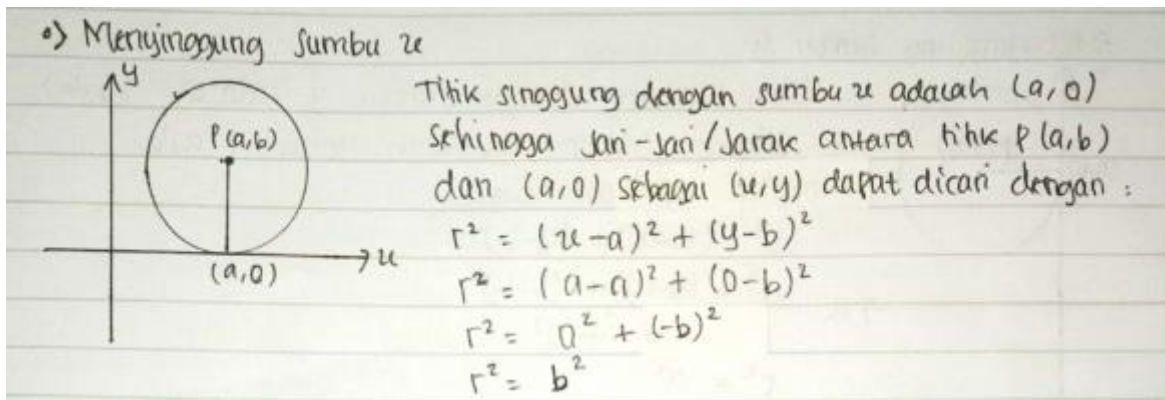 •) Menyinggung sumbu x
y
P(a,b)
x
(a,0)
Titik singgung dengan sumbu x adalah (a,0)
sehingga jari-jari/jarak antara titik P(a,b)
dan (a,0) sebagai (x,y) dapat dicari dengan :
r² = (x-a)² + (y-b)²
r² = (a-a)² + (0-b)²
r² = 0² + (-b)²
r² = b²